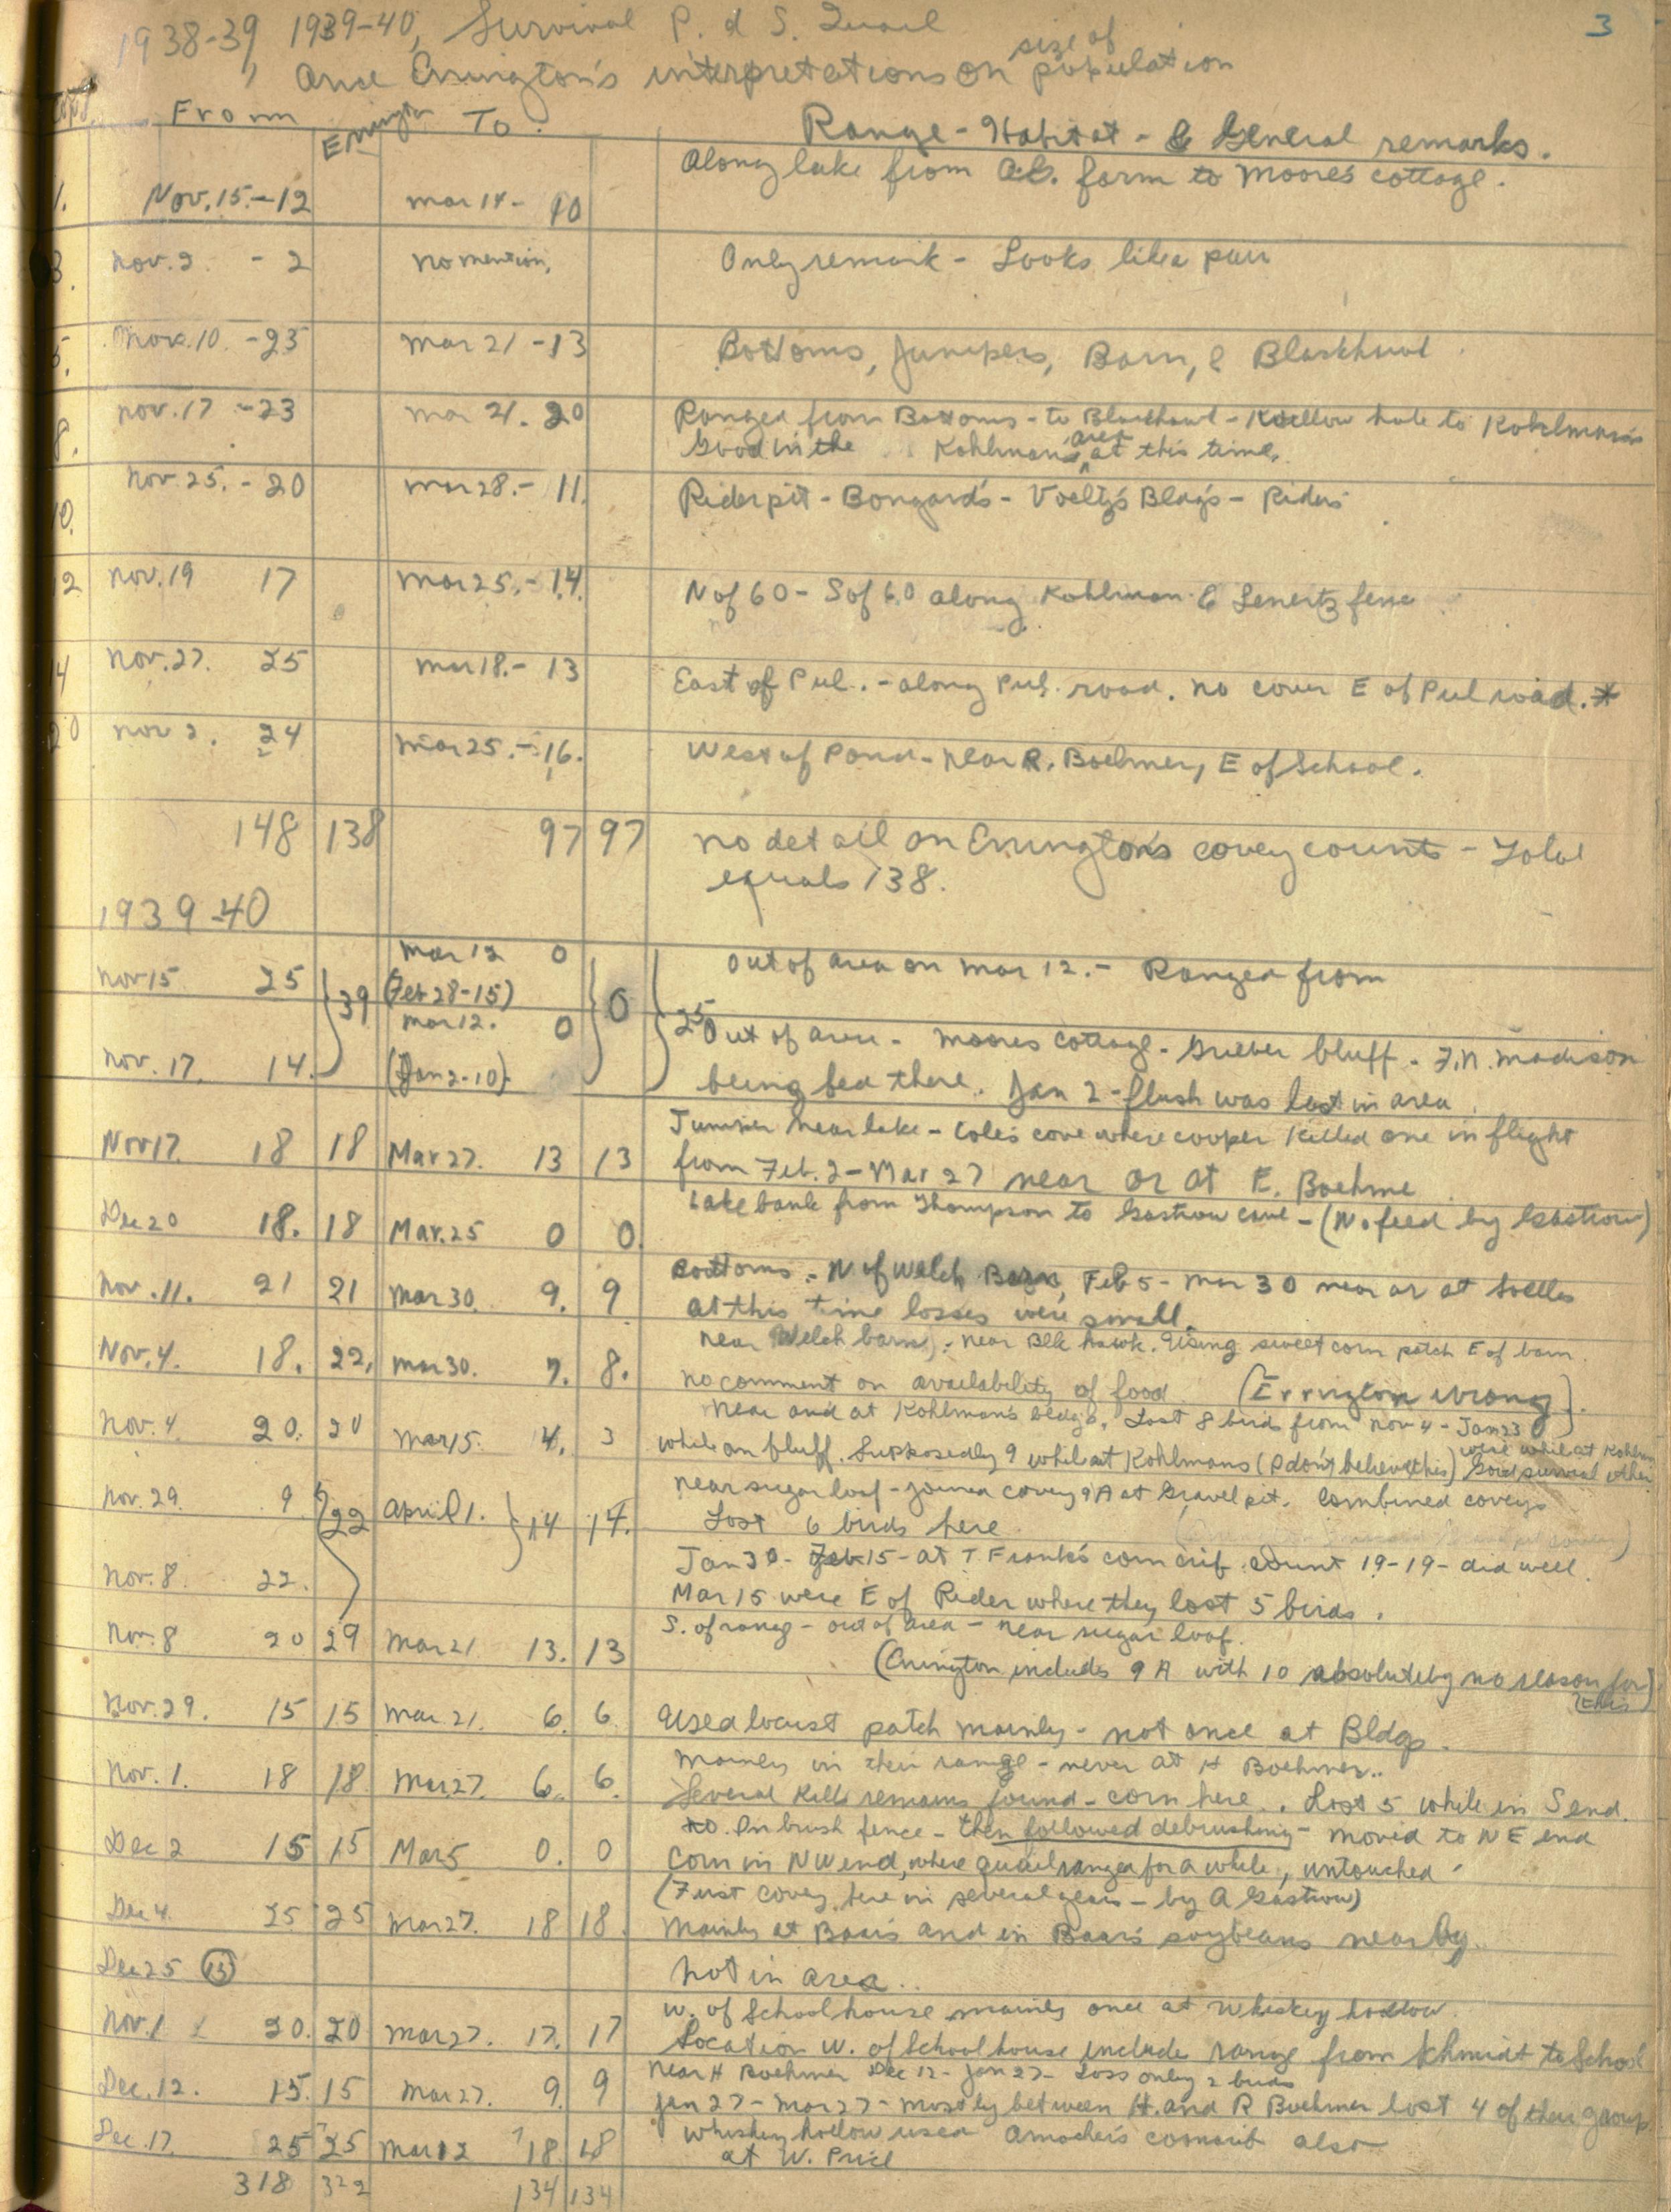 3
1938-39, 1939-40, Survival P. d S. Quail
And Errington's interpretations on size of population
From Errington To Range - Habitat - & General remarks.
1. Nov. 15. - 12 Mar 14 - 10 Along lake from farm to Moore's cottage.
Nov. 2 - 2 no mention. Only remark - Looks like a pair
Nov. 10. - 23 Mar 21 - 13 Bottoms, Junipers, Barn, & Blackhawk
8. Nov. 17 - 23 Mar 21. 20 Ranged from Bottoms - to Blackhawk - hole to Kohlman's
Good in the Kohlman's area at this time.
10. Nov. 25. - 20 Mar 28. - 11. Rider pit - Bongard's - Voelty's Bldg's - Riders
12 Nov. 19 17 Mar 25. - 14. N of 60 - S of 60 along Kohlman & Lenertz fence
4 Nov. 27. 25 Mar 18. - 13 East of Pul. - along Pul. road. No cover E of Pul road. *
20 Nov 2. 24 Mar 25. - 16. West of Pond - near R. Boehmer, E of School.
148 138 97 97 No detail on Errington's covey counts - Total
equals 138.
1939-40
Nov 15 25 39 Mar 12 0 0 Out of area on Mar 12. - Ranged from
(Feb 28-15)
Nov. 17. 14. Mar 12. 0 25 Out of area - Moores cottage - Grieber bluff - F.N. Madison
(Jan 2-10) being fed there. Jan 2 - flush was last in area.
Nov 17. 18 18 Mar 27. 13 13 Juniper near lake - Coles cove where cooper killed one in flight
from Feb. 2 - Mar 27 near or at E. Boehme
Dec 20 18. 18 Mar. 25 0 0. Lake bank from Thompson to Gastrow - (No feed by Gastrow)
Nov. 11. 21 21 Mar 30. 9. 9 Bottoms. - N of Welch Barn, Feb 5 - Mar 30 near or at
at this time losses were small.
Nov. 4. 18. 22, Mar 30. 7. 8. near Welch barn, - near Blk hawk. Using sweet corn patch E of barn.
No comment on availability of food (Errington wrong).
Nov. 4. 20. 20 Mar 15. 4. 3 Near and at Kohlman's bldgs. Lost 8 birds from Nov 4 - Jan 23
while on bluff. Supposedly 9 while at Kohlmans (I don't believe this) Good survival
were while at Kohlman
Nov. 29. 9. 22 April 1. 14 14. near sugar loaf - joined covey 9A at Gravel pit. Combined coveys
Lost 6 birds here
Nov. 8. 22. Jan 30 - Feb 15 - at T. Frank's corn crib. Count 19-19 - did well.
Mar 15 were E of Rider where they lost 5 birds.
Nov. 8 20 29 Mar 21 13. 13 S. of range - out of area - near sugar loaf.
(Errington includes 9 A with 10 absolutely no reason for this)
Nov. 29. 15 15 Mar. 21. 6. 6. Used locust patch mainly - not once at Bldgs.
Nov. 1. 18 18 Mar 27. 6. 6. Mainly in their range - never at H Boehmer..
Several kills remains found - corn here. Lost 5 while in S end.
Dec 2 15 15 Mar 5 0. 0 In brush fence - then followed debrushing - moved to NE end
Corn in NW end, where quail ranged for a while, untouched.
(First covey here in several years - by A Gastrow)
Dec 4. 25 25 Mar 27. 18 18. Mainly at Baars and in Baar's soybeans nearby.
Dec 25 (13) Not in area..
Nov. 1 20. 20 Mar 27. 17. 17 W. of Schoolhouse mainly once at Whiskey hollow.
Location W. of Schoolhouse include range from Schmidt to School
Dec. 12. 15. 15 Mar 27. 9. 9 Near H Boehmer Dec 12 - Jan 27 - Loss only 2 birds
Jan 27 - Mar 27 - mostly between H. and R Boehmer lost 4 of their group
Dec. 17. 25 25 Mar 12 18 18 Whiskey hollow used Amacher's corncrib also
at W. Price
318 322 134 134